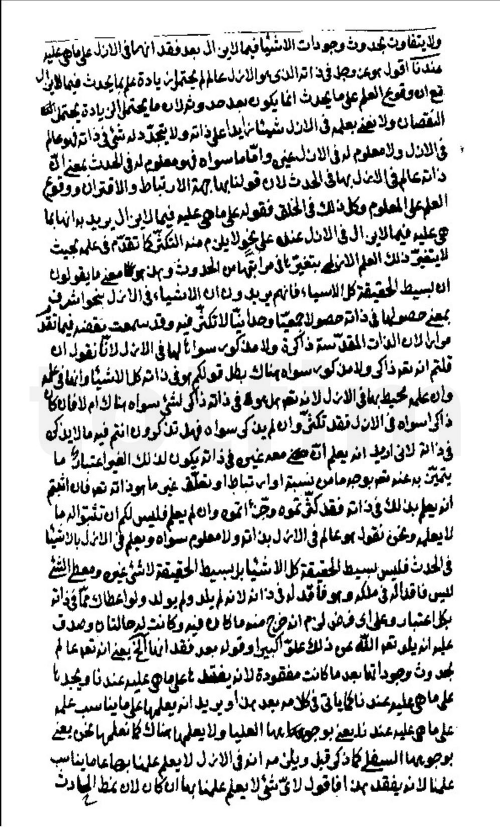 ولا يتفاوت بحدوث وجودات الاشيا فيما لا يزال بعد فقد انها في الازل على ما هي عليه
عندنا اقول هو عز وجل في ذاته الذي هو الازل عالم لم يحتمل زيادة علم بما يحدث فيما لا يزال
مع ان وقوع العلم على ما يحدث انما يكون بعد حدوثه لان ما يحتمل الزيادة يحتمل
النقصان ولا نعني بعلمه في الازل شيئا زايدا على ذاته ولا يتجدد له شئ في ذاته فهو عالم
في الازل ولا معلوم له في الازل غيره واما ما سواه فهو معلوم له في الحدث بمعنى ان
ذاته عالم في الازل بها في الحدث لان قولنا بها جهة الارتباط والاقتران ووقوع
العلم على المعلوم وكل ذلك في الخلق فقوله على ما هي عليه فيما لا يزال يريد به انها بما
هي عليه فيما لا يزال في الازل عنده على نحو لا يلزم منه التكثر كما تقدم في علمه بحيث
لا يتغير ذلك العلم الازلي بتغيرها في مراتبها من الحدوث وهذا هو معنى ما يقولون
ان بسيط الحقيقة كل الاشياء فانهم يريدون ان الاشياء في الازل بنحو اشرف
بمعنى حصولها في ذاته حصولا جمعيا وحدانيا لا تكثر فيه وقد سمعت نقضه فيما تقدم
مرارا لان الذات المقدسة ذاكرة ولا مذكور سواها في الازل لانا نقول ان
قلتم انه تعه ذاكر ولا مذكور سواه هناك بطل قولكم هو في ذاته كل الاشيا وانها في علمه
وان علمه محيط بها في الازل لانه تعه هل هو في ذاته ذاكر لشئ سواه هناك ام لا فان كان
ذاكرا سواه في الازل فقد تكثر وان لم يذكر سواه فهل تذكرون انتم فيه ما لا يذكر
في ذاته لاني اريد انه يعلم ان معه غيره في ذاته يكون لذلك الغير اعتبار ما
يتميز به عنه تعه بوجه ما من نسبة او ارتباط او تعلق غير ما هو ذاته تعه فان اثبتم
انه يعلم بذلك في ذاته فقد كثرتموه وجزاتموه وان لم يعلم فليس لكم ان تثبتوا له ما
لا يعلمه ونحن نقول هو عالم في الازل بذاته ولا معلوم سواه ويعلم في الازل بالاشيا
في الحدث فليس بسيط الحقيقة كل الاشيا بل بسيط الحقيقة لا شئ غيره ومعطي الشئ
ليس فاقدا له في ملكه وهو فاقد له في ذاته لانه لم يلد ولم يولد ولو اعطاك مما في ذاته
بكل اعتبار وعلى اي فرض لزم انه خرج منه ما كان فيه وكانت له حالتان وصدق
عليه انه يلد تعه الله عن ذلك علوا كبيرا وقوله بعد فقد انها الخ يعني انه تعه عالم
بحدوث وجوداتها بعد ما كانت مفقودة لانه يفقدها على ما هي عليه عندنا ويجدها
على ما هي عليه عندنا كما ياتي في كلامه بعد هذا او يريد انه يعلمها على ما يناسب علمه
على ما هي عليه عندنا يعني بوجوهها العليا ولا يعلمها هناك كما نعلمها نحن يعني
بوجوهها السفلى كما ذكر قبل ويلزمه انه في الازل لا يعلم علمنا بها على ما يناسب
علمنا لانه يفقد بهذا فاقول لاي شئ لا يعلم علمنا بها ان كان لان نمط الحادث